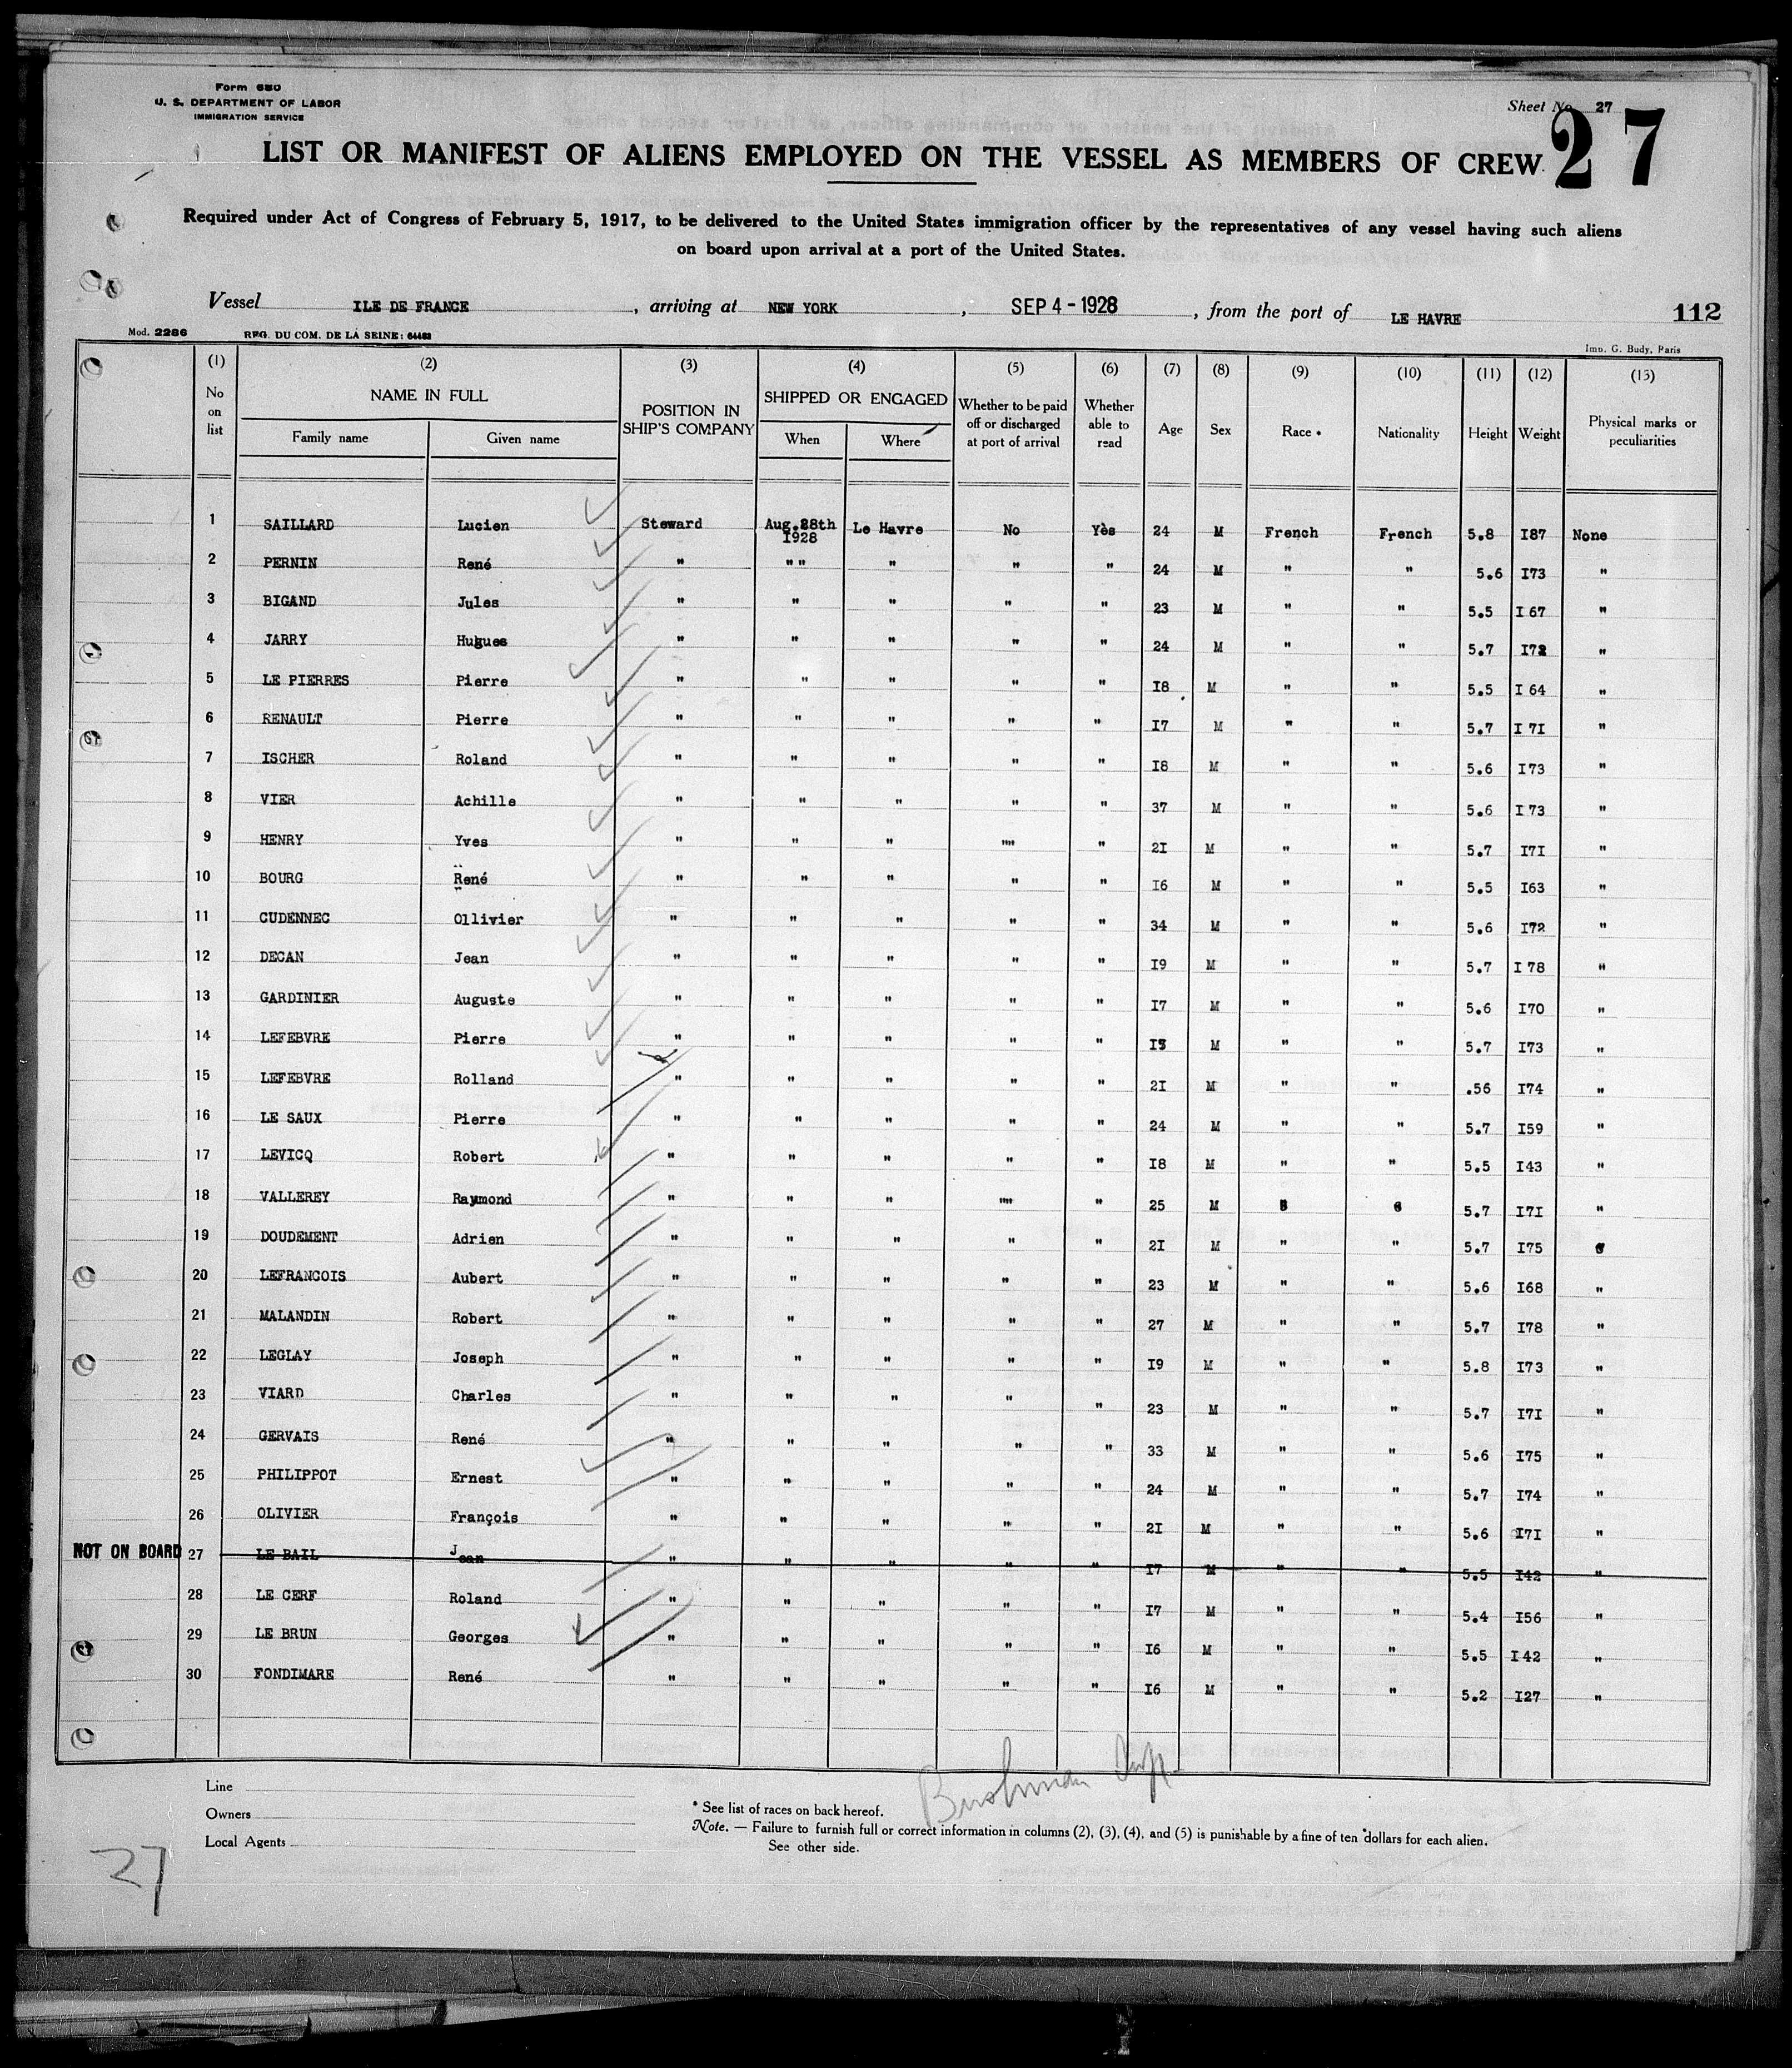 Form 680
U. S. DEPARTMENT OF LABOR
IMMIGRATION SERVICE
Sheet No. 27
27
LIST OR MANIFEST OF ALIENS EMPLOYED ON THE VESSEL AS MEMBERS OF CREW
Required under Act of Congress of February 5, 1917, to be delivered to the United States immigration officer by the representatives of any vessel having such aliens
on board upon arrival at a port of the United States.
Vessel ILE DE FRANCE, arriving at NEW YORK, SEP 4 - 1928, from the port of LE HAVRE 112
Mod. 2286 REG. DU COM. DE LA SEINE: 64482 Imp. G. Budy, Paris
(1) (2) (3) (4) (5) (6) (7) (8) (9) (10) (11) (12) (13)
No on list NAME IN FULL Family name Given name POSITION IN SHIP'S COMPANY SHIPPED OR ENGAGED When Where Whether to be paid off or discharged at port of arrival Whether able to read Age Sex Race * Nationality Height Weight Physical marks or peculiarities
1 SAILLARD Lucien Steward Aug.28th 1928 Le Havre No Yès 24 M French French 5.8 I87 None
2 PERNIN René " " " " " " 24 M " " 5.6 I73 "
3 BIGAND Jules " " " " " 23 M " " 5.5 I 67 "
4 JARRY Hugues " " " " " 24 M " " 5.7 I72 "
5 LE PIERRES Pierre " " " " " I8 M " " 5.5 I 64 "
6 RENAULT Pierre " " " " " I7 M " " 5.7 I 7I "
7 ISCHER Roland " " " " " I8 M " " 5.6 I73 "
8 VIER Achille " " " " " 37 M " " 5.6 I 73 "
9 HENRY Yves " " " "" " 2I M " " 5.7 I7I "
10 BOURG René " " " " " I6 M " " 5.5 I63 "
11 CUDENNEC Ollivier " " " " " 34 M " " 5.6 I72 "
12 DECAN Jean " " " " " I9 M " " 5.7 I 78 "
13 GARDINIER Auguste " " " " " I7 M " " 5.6 I70 "
14 LEFEBVRE Pierre " " " " " M " " 5.7 I73 "
15 LEFEBVRE Rolland " " " " " 2I M " " .56 I74 "
16 LE SAUX Pierre " " " " " 24 M " " 5.7 I59 "
17 LEVICQ Robert " " " " " I8 M " " 5.5 I43 "
18 VALLEREY Raymond " " " "" " 25 M 5.7 I7I "
19 DOUDEMENT Adrien " " " " " 2I M " " 5.7 I75
20 LEFRANCOIS Aubert " " " " " 23 M " " 5.6 I68 "
21 MALANDIN Robert " " " " " 27 M " " 5.7 I78 "
22 LEGLAY Joseph " " " " " I9 M " " 5.8 I73 "
23 VIARD Charles " " " " " 23 M " " 5.7 I7I "
24 GERVAIS René " " " " " 33 M " " 5.6 I75 "
25 PHILIPPOT Ernest " " " " " 24 M " " 5.7 I74 "
26 OLIVIER François " " " " " 2I M " " 5.6 I7I "
NOT ON BOARD 27 LE BAIL Jean " " " " " I7 M " " 5.5 I42 "
28 LE CERF Roland " " " " " I7 M " " 5.4 I56 "
29 LE BRUN Georges " " " " " I6 M " " 5.5 I 42 "
30 FONDIMARE René " " " " " I6 M " " 5.2 I27 "
Line
Owners
Local Agents
* See list of races on back hereof.
Note. — Failure to furnish full or correct information in columns (2), (3), (4), and (5) is punishable by a fine of ten dollars for each alien.
See other side.
27